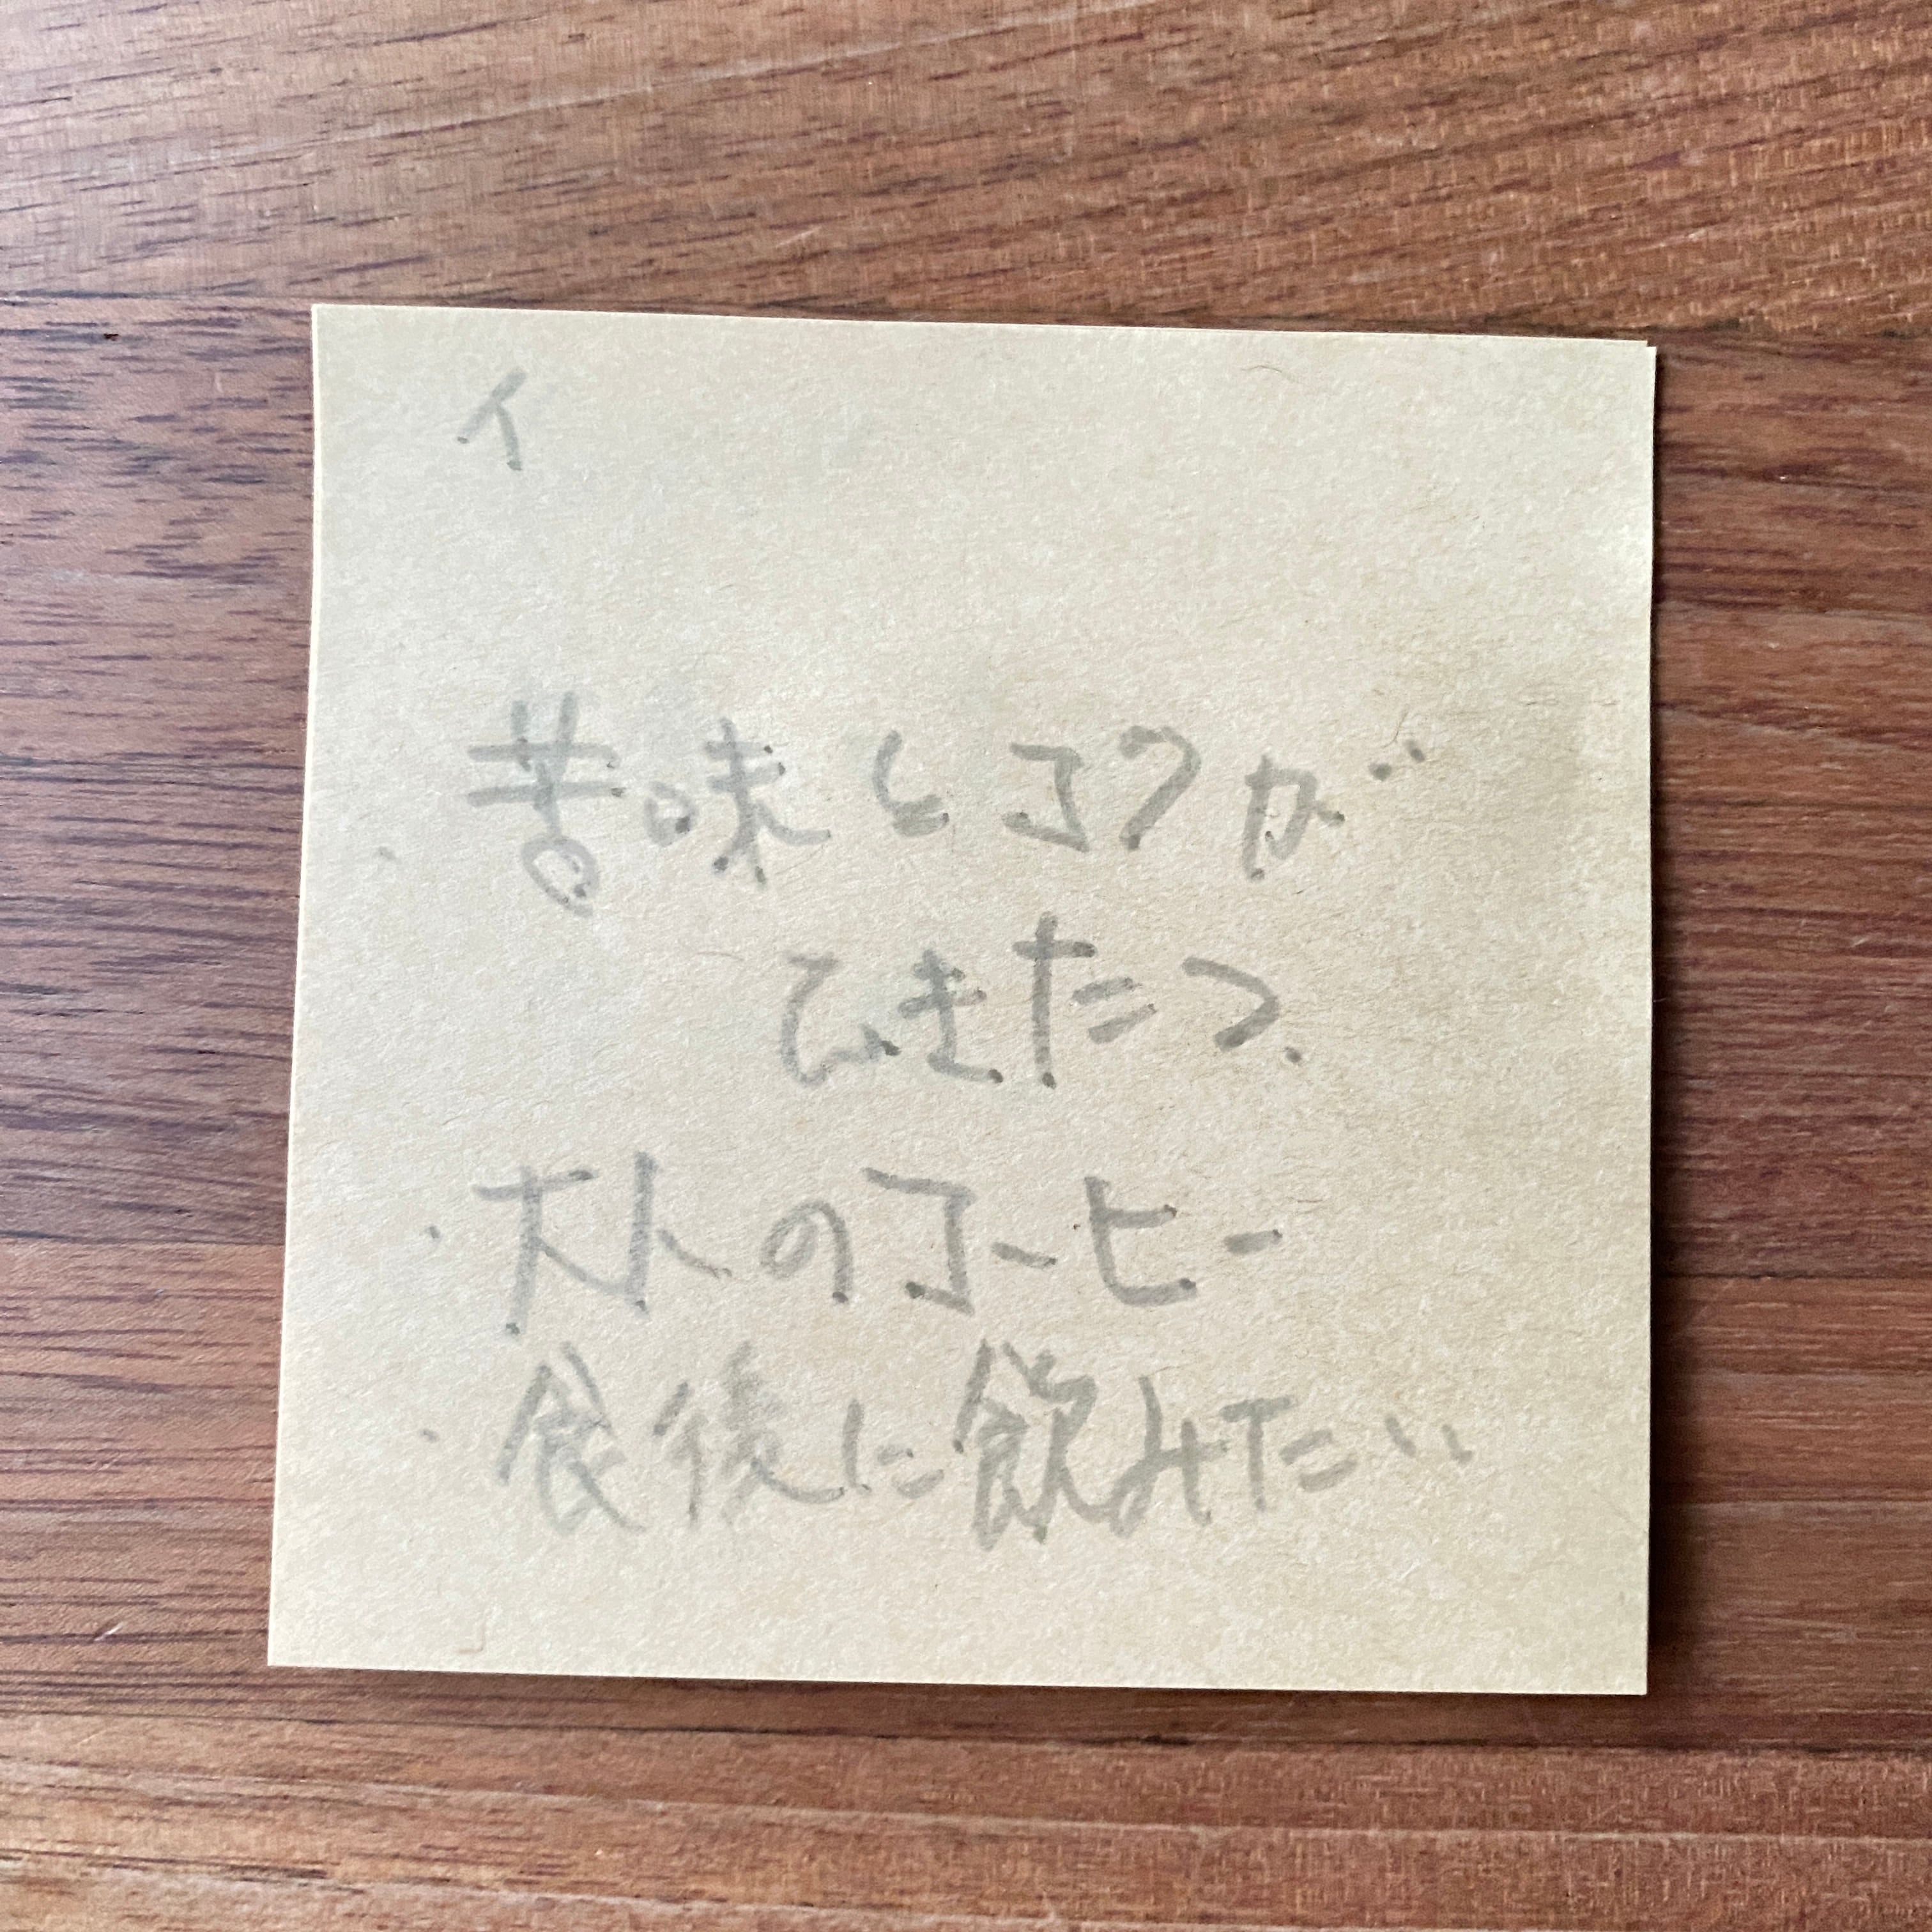 イ
・苦味とコクが
ひきたつ
・大人のコーヒー
・食後に飲みたい